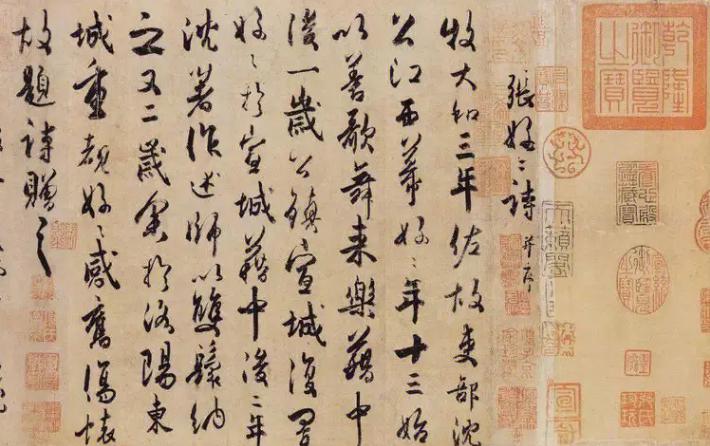 乾隆
御覽
之寶
天籟閣
張好〻詩 并序
牧大和三年佐故吏部沈
公江西幕好〻年十三始
以善歌舞来樂籍中
後一歲公鎮宣城復置
好〻於宣城籍中後二年
沈著作述師以雙鬟納
之又二歲余於洛陽東
城重覩好〻感舊傷懷
故題詩贈之